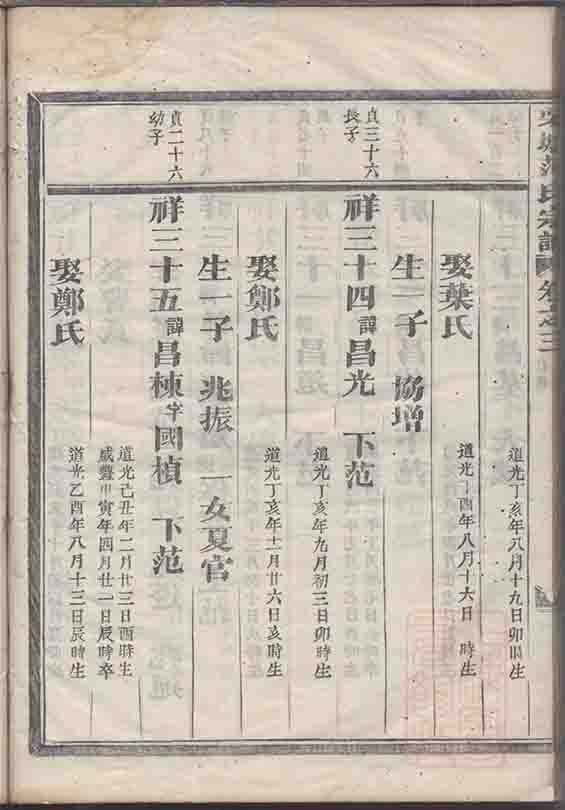 范氏宗譜
道光丁亥年八月十九日卯時生
娶葉氏
道光丁酉年八月十六日 時生
生一子 協增
貞三十六
長子
祥三十四諱昌光 下范
道光丁亥年九月初三日卯時生
娶鄭氏
道光丁亥年十一月廿六日亥時生
生一子 兆振 一女夏官
貞二十六
幼子
祥三十五諱昌棟字國楨 下范
道光己丑年二月廿三日酉時生
咸豐甲寅年四月廿一日辰時卒
娶鄭氏
道光乙酉年八月十三日辰時生